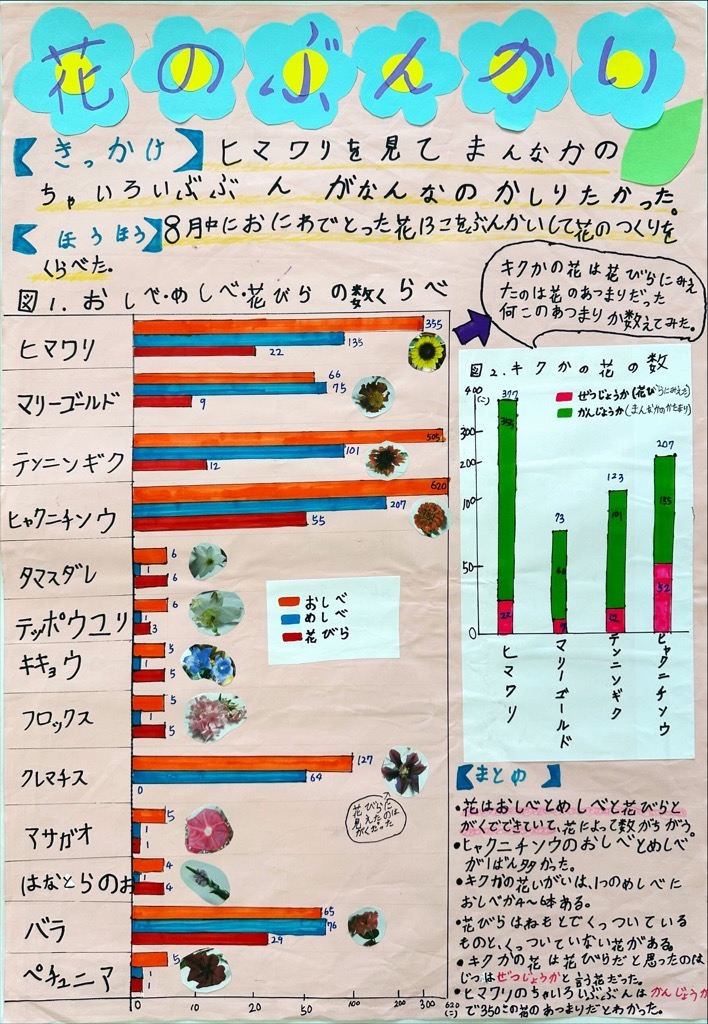 花のぶんかい
【きっかけ】ヒマワリを見てまんなかの
ちゃいろいぶぶんがなんなのかしりたかった。
【ほうほう】8月中におにわでとった花13こをぶんかいして花のつくりを
くらべた。
図1.おしべ・めしべ・花びらの数くらべ
キクかの花は花びらにみえ
たのは花のあつまりだった
何このあつまりか数えてみた。
ヒマワリ 355 135 22
マリーゴールド 66 75 9
テンニンギク 505 101 12
ヒャクニチソウ 620 207 55
タマスダレ 6 1 6
テッポウユリ 6 1 3
キキョウ 5 1 5
フロックス 5 1 5
クレマチス 127 64 0
花びらに
見えたのは
がくだった
アサガオ 5 1 1
はなとらのお 4 1 4
バラ 65 76 29
ペチュニア 5 1 1
0 10 20 50 100 200 300 620
(こ)
おしべ
めしべ
花びら
図2.キクかの花の数
400
(こ)
300
200
100
50
0
ぜつじょうか(花びらにみえた)
かんじょうか(まんなかのかたまり)
377 22
73
123 101 12
207 52
ヒマワリ
マリーゴールド
テンニンギク
ヒャクニチソウ
【まとめ】
・花はおしべとめしべと花びらと
がくでできていて、花によって数がちがう。
・ヒャクニチソウのおしべとめしべ
が1ばん多かった。
・キクかの花いがいは、1つのめしべに
おしべが4〜6本ある。
・花びらはねもとでくっついている
ものと、くっついていない花がある。
・キクかの花は花びらだと思ったのは
じつはぜつじょうかと言う花だった。
・ヒマワリのちゃいろいぶぶんはかんじょうか
で350この花のあつまりだとわかった。